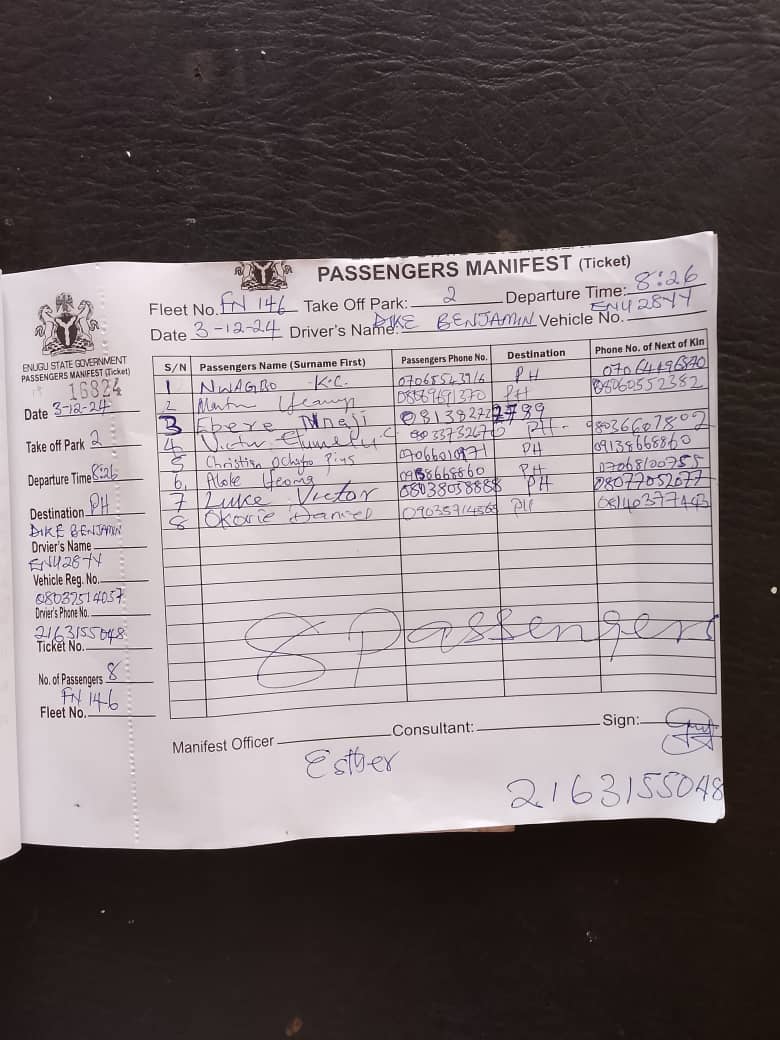 ENUGU STATE GOVERNMENT
PASSENGERS MANIFEST (Ticket)
16824
Date 3-12-24
Take off Park 2
Departure Time 8:26
Destination PH
DIKE BENJAMIN
Drvier's Name
ENU28YY
Vehicle Reg. No.
08032514057
Drvier's Phone No.
2163155048
Ticket No.
No. of Passengers 8
FN 146
Fleet No.
PASSENGERS MANIFEST (Ticket)
Fleet No. FN 146 Take Off Park: 2 Departure Time: 8:26
Date 3-12-24 Driver's Name: DIKE BENJAMIN Vehicle No. ENU28YY
S/N Passengers Name (Surname First) Passengers Phone No. Destination Phone No. of Next of Kin
1 NWAGBO K.C. PH
2 PH 08060552382
3 Ebere Nnaji
4 PH
5 Christian Ochofo Pius PH 09138668860
6, Aloke Ifeoma PH 07068100755
7 Luke Victor 08038058888 PH 08077052077
8 Okorie Daniel PH
8 Passengers
Manifest Officer Consultant: Sign:
Esther
2163155048